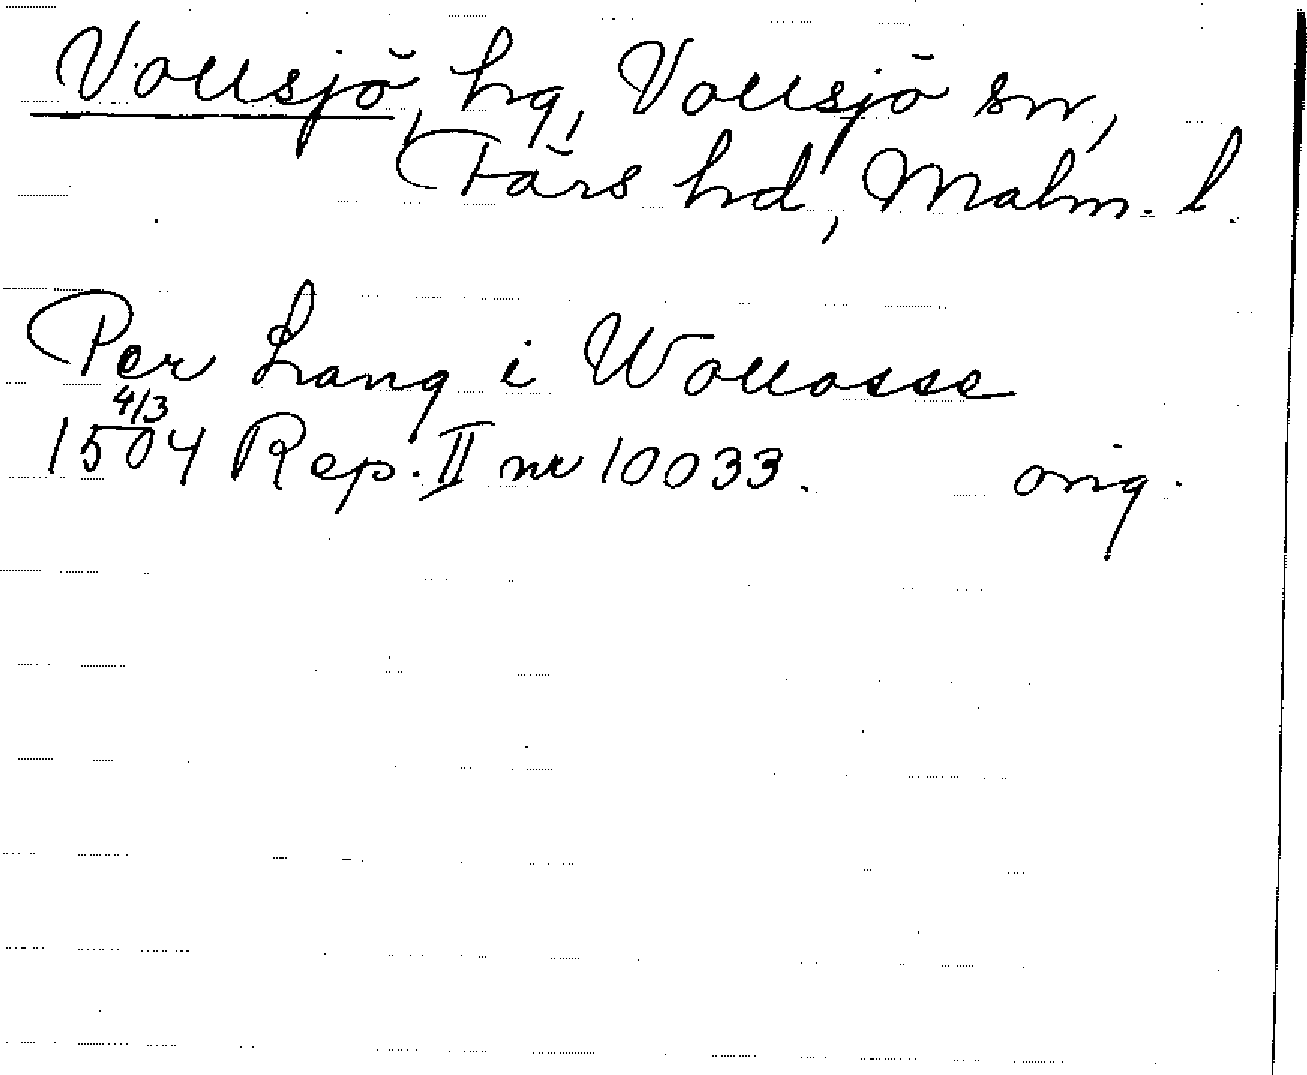 Vollsjö, hg, Vollsjö sn,
Färs hd, Malm. l.
Per Lang i Wollosse
4/3
1504 Rep. II nr 10033. orig.